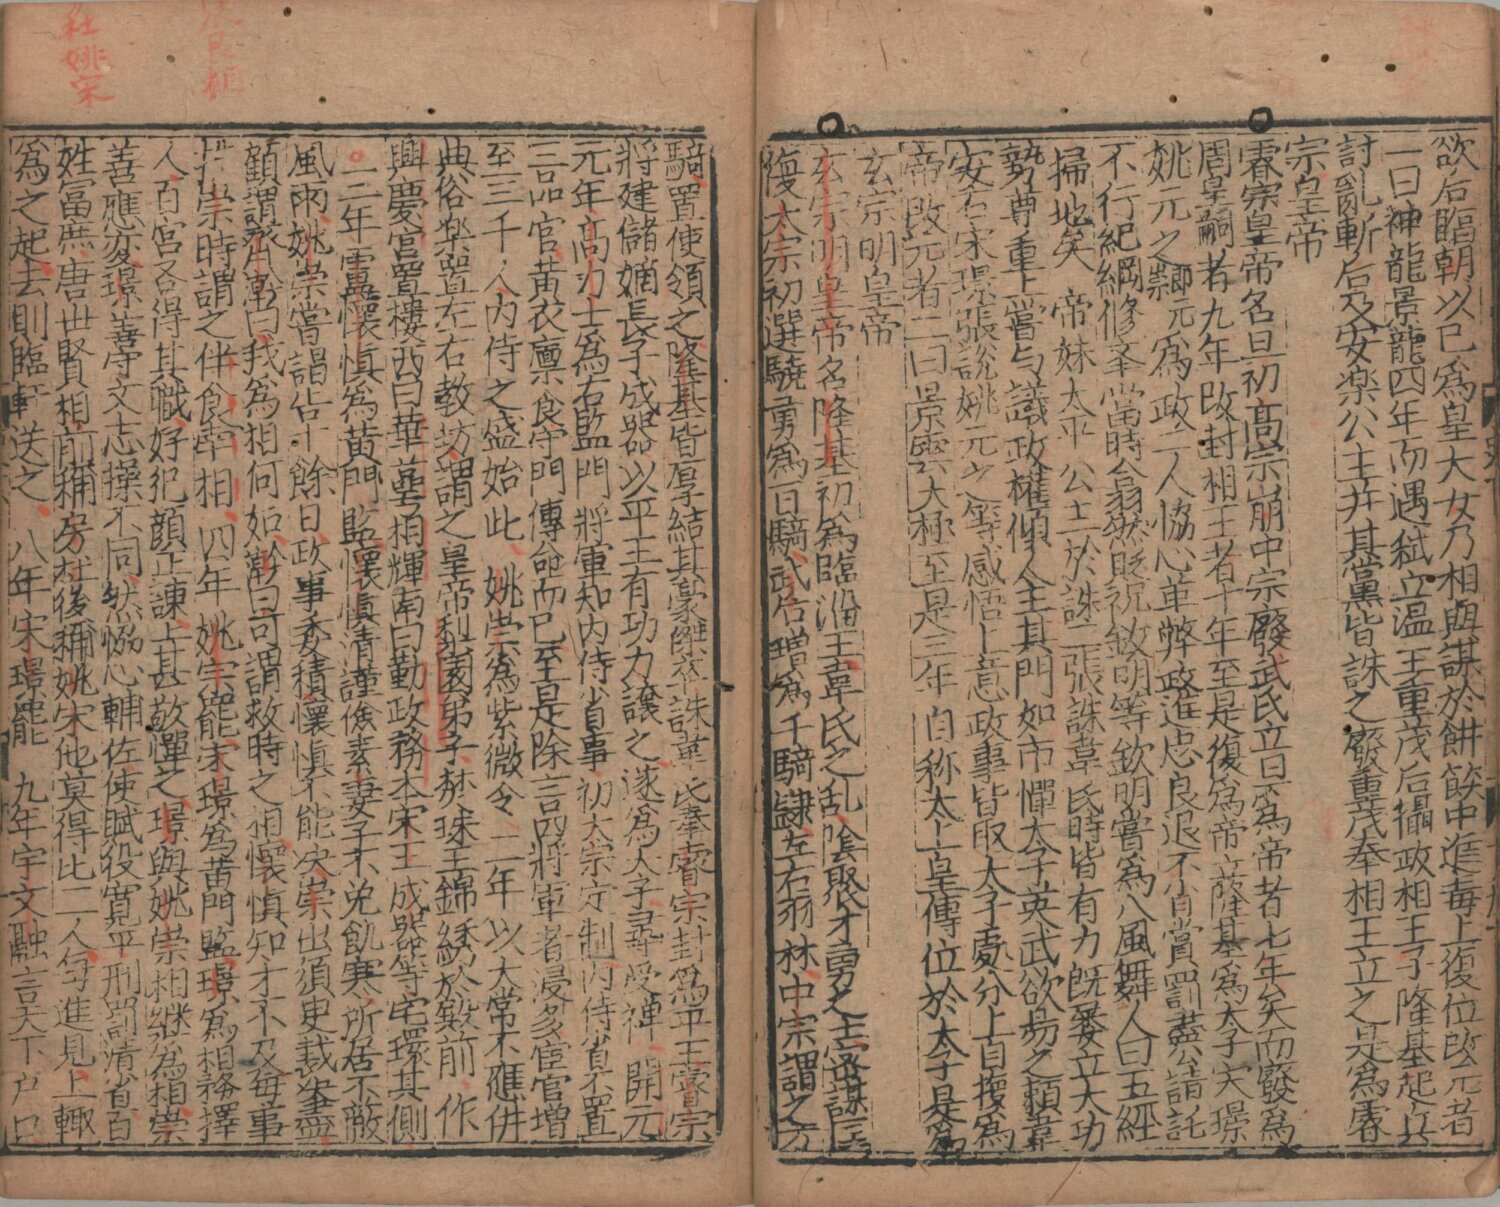 欲后臨朝以已爲皇大女乃相與謀於餅餤中進毒上復位改元者
二曰神龍景龍四年而遇弒立温王重茂后攝政相王子隆基起兵
討亂斬后及安楽公主并其黨皆誅之廢重茂奉相王立之是爲睿
宗皇帝
睿宗皇帝名旦初高宗崩中宗廢武氏立旦爲帝者七年矣而廢爲
周皇嗣者九年改封相王者十年至是復爲帝立隆基爲太子宋璟
姚元之爲政二人恊心革弊政進忠良退不肖賞罰盡公請託
不行紀綱修擧當時翕然
掃地矣 帝妹太平公主於誅二張誅韋氏時皆有力既屡立大功
勢尊重上嘗与議政権傾人主其門如市憚太子英武欲易之頼韋
安石宋璟張說姚元之等感悟上意政事皆取太子處分上自復爲
帝改元者二曰景雲大極至是三年自称太上皇傳位於太子是爲
玄宗明皇帝
玄宗明皇帝名隆基初爲臨淄王韋氏之乱陰聚才勇之士密謀匡
復太宗初選驍勇爲百騎武后増爲千騎隷左右羽林中宗謂之万
騎置使領之隆基皆厚結其豪傑卒誅韋氏奉睿宗封爲平王睿宗
將建儲嫡長子成器以平王有功力譲之遂爲太子尋受禪 開元
元年高力士爲右監門將軍知内侍省事初太宗定制内侍省不置
三品官黃衣廪食守門傳命而已至是除三品將軍者浸多宦官増
至三千人内侍之盛始此 姚崇爲紫微令二年以太常不應併
典俗楽置左右教坊謂之皇帝梨園弟子焚珠玉錦綉於殿前作
興慶宮置樓西曰華萼相輝南曰勤政務本宋王成器等宅環其側
三年盧懷慎爲黃門監懷慎清謹儉素妻子不免飢寒所居不蔽
風雨姚崇嘗謁告十餘日政事委積懷慎不能决崇出須臾裁决盡
顧謂齊澣曰我爲相何如澣曰可謂救時之相懷慎知才不及每事
推崇時謂之伴食宰相四年姚崇罷宋璟爲黃門監璟爲相務擇
人百官各得其職好犯顔正諫上甚敬憚之璟與姚崇相継爲相崇
善應变璟善守文志操不同然恊心輔佐使賦役寛平刑罰清省百
姓冨庶唐世賢相前稱房杜後稱姚宋他莫得比二人每進見上輙
爲之起去則臨軒送之 八年宋璟罷 九年宇文融言天下戶口
杜姚宋